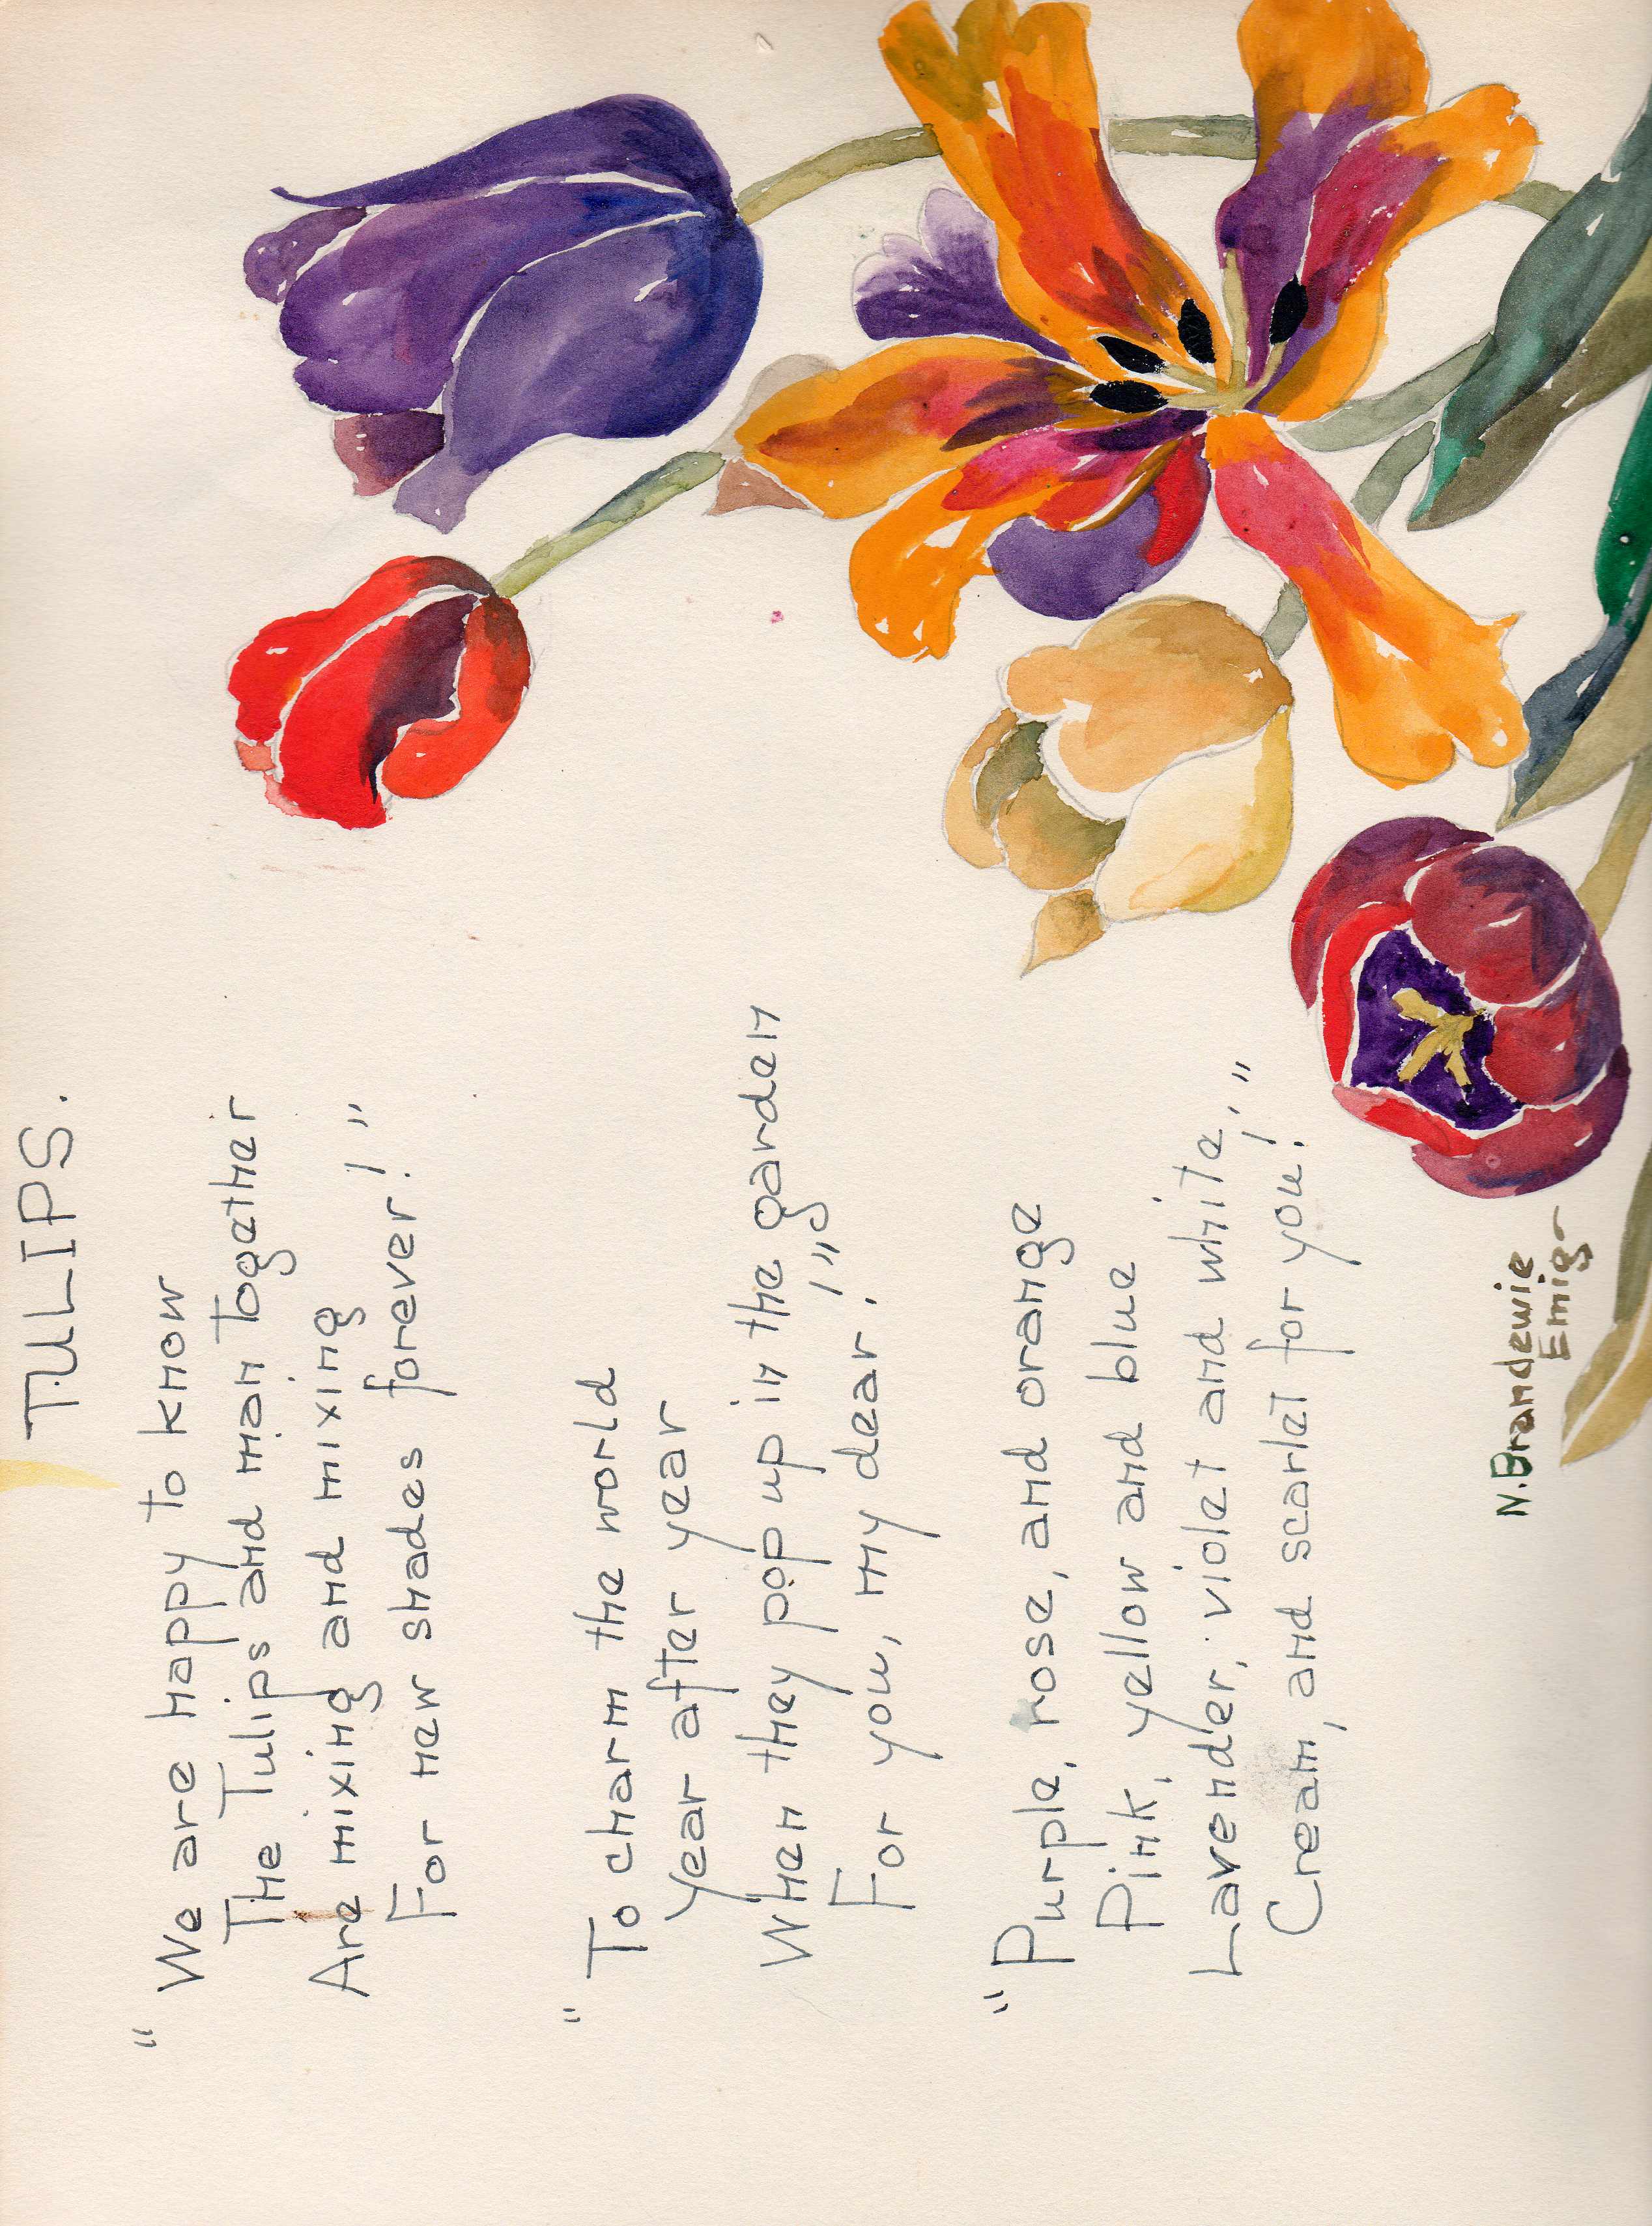 TULIPS.
" We are happy to know
The Tulips and man together
Are mixing and mixing
For new shades forever! "
" To charm the world
Year after year
When they pop up in the garden
For you, my dear! "
" Purple, rose, and orange
Pink, yellow and blue
Lavender, violet and white,
Cream, and scarlet for you! "
N. Brandewie
Emig